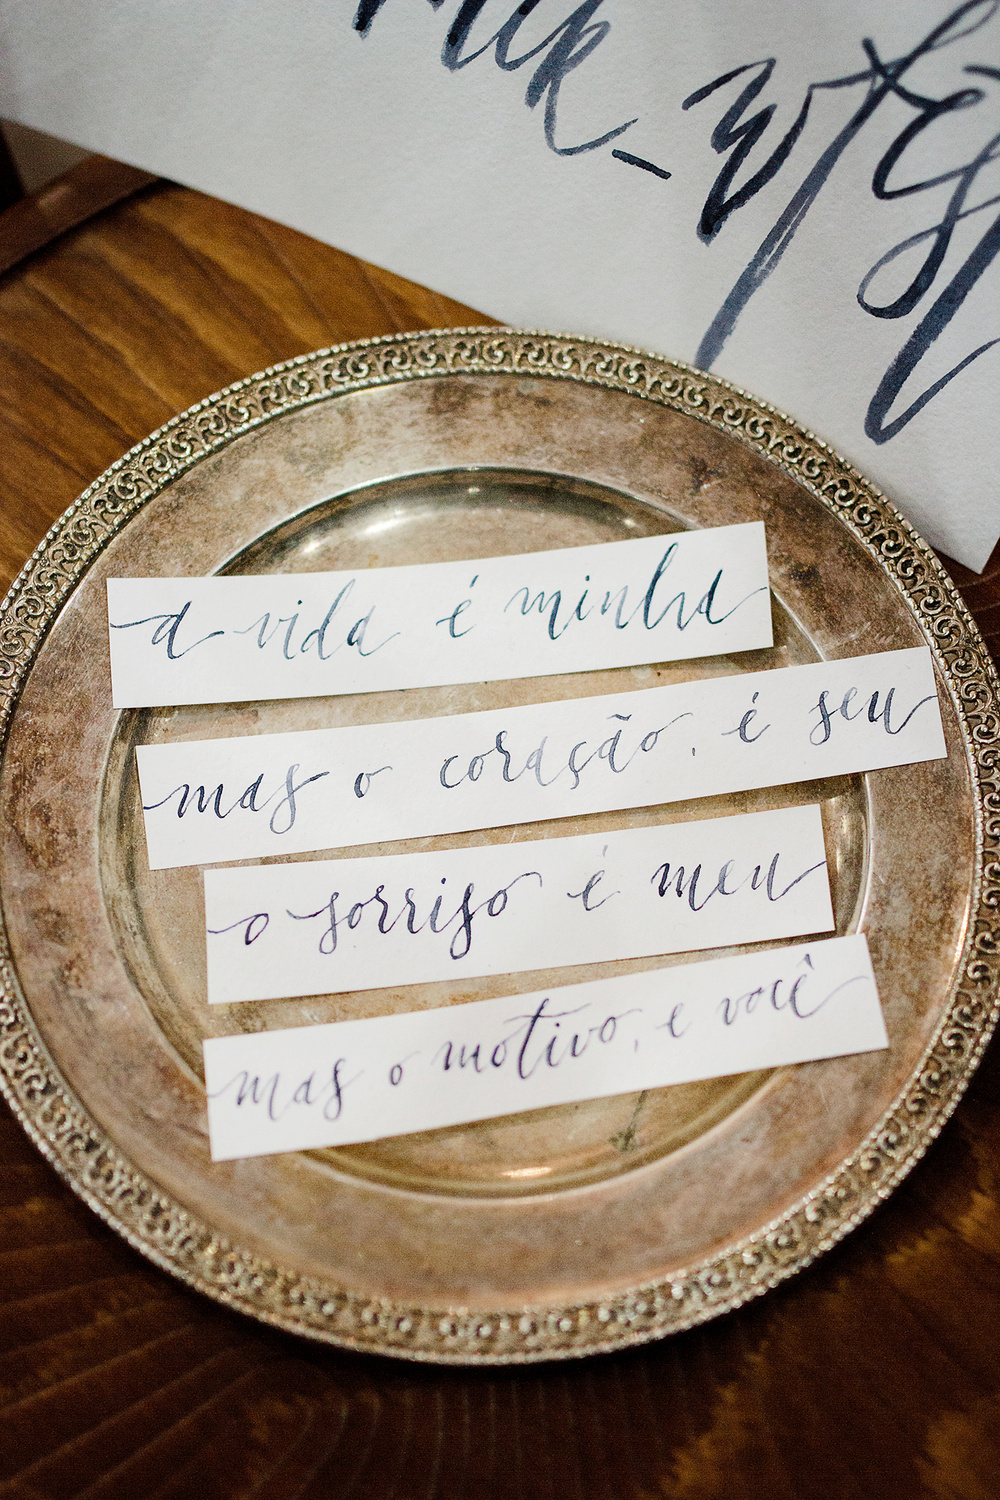 a vida é minha
mas o coração, é seu
o sorriso é meu
mas o motivo, e você